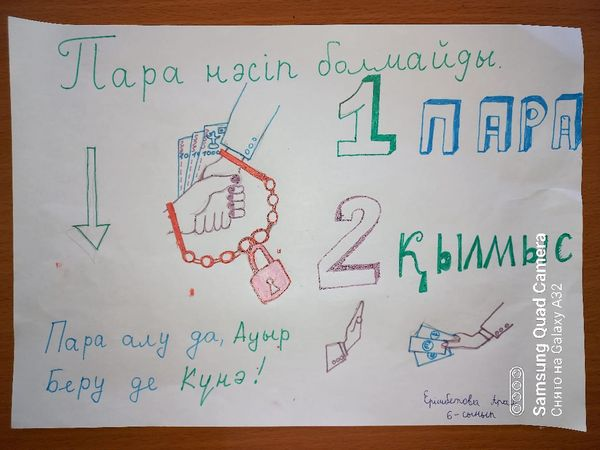 Пара нәсіп болмайды.
1 ПАРА
2 ҚЫЛМЫС
Пара алу да, Ауыр
Беру де Күнә!
6-сынып
Samsung Quad Camera
Снято на Galaxy A32